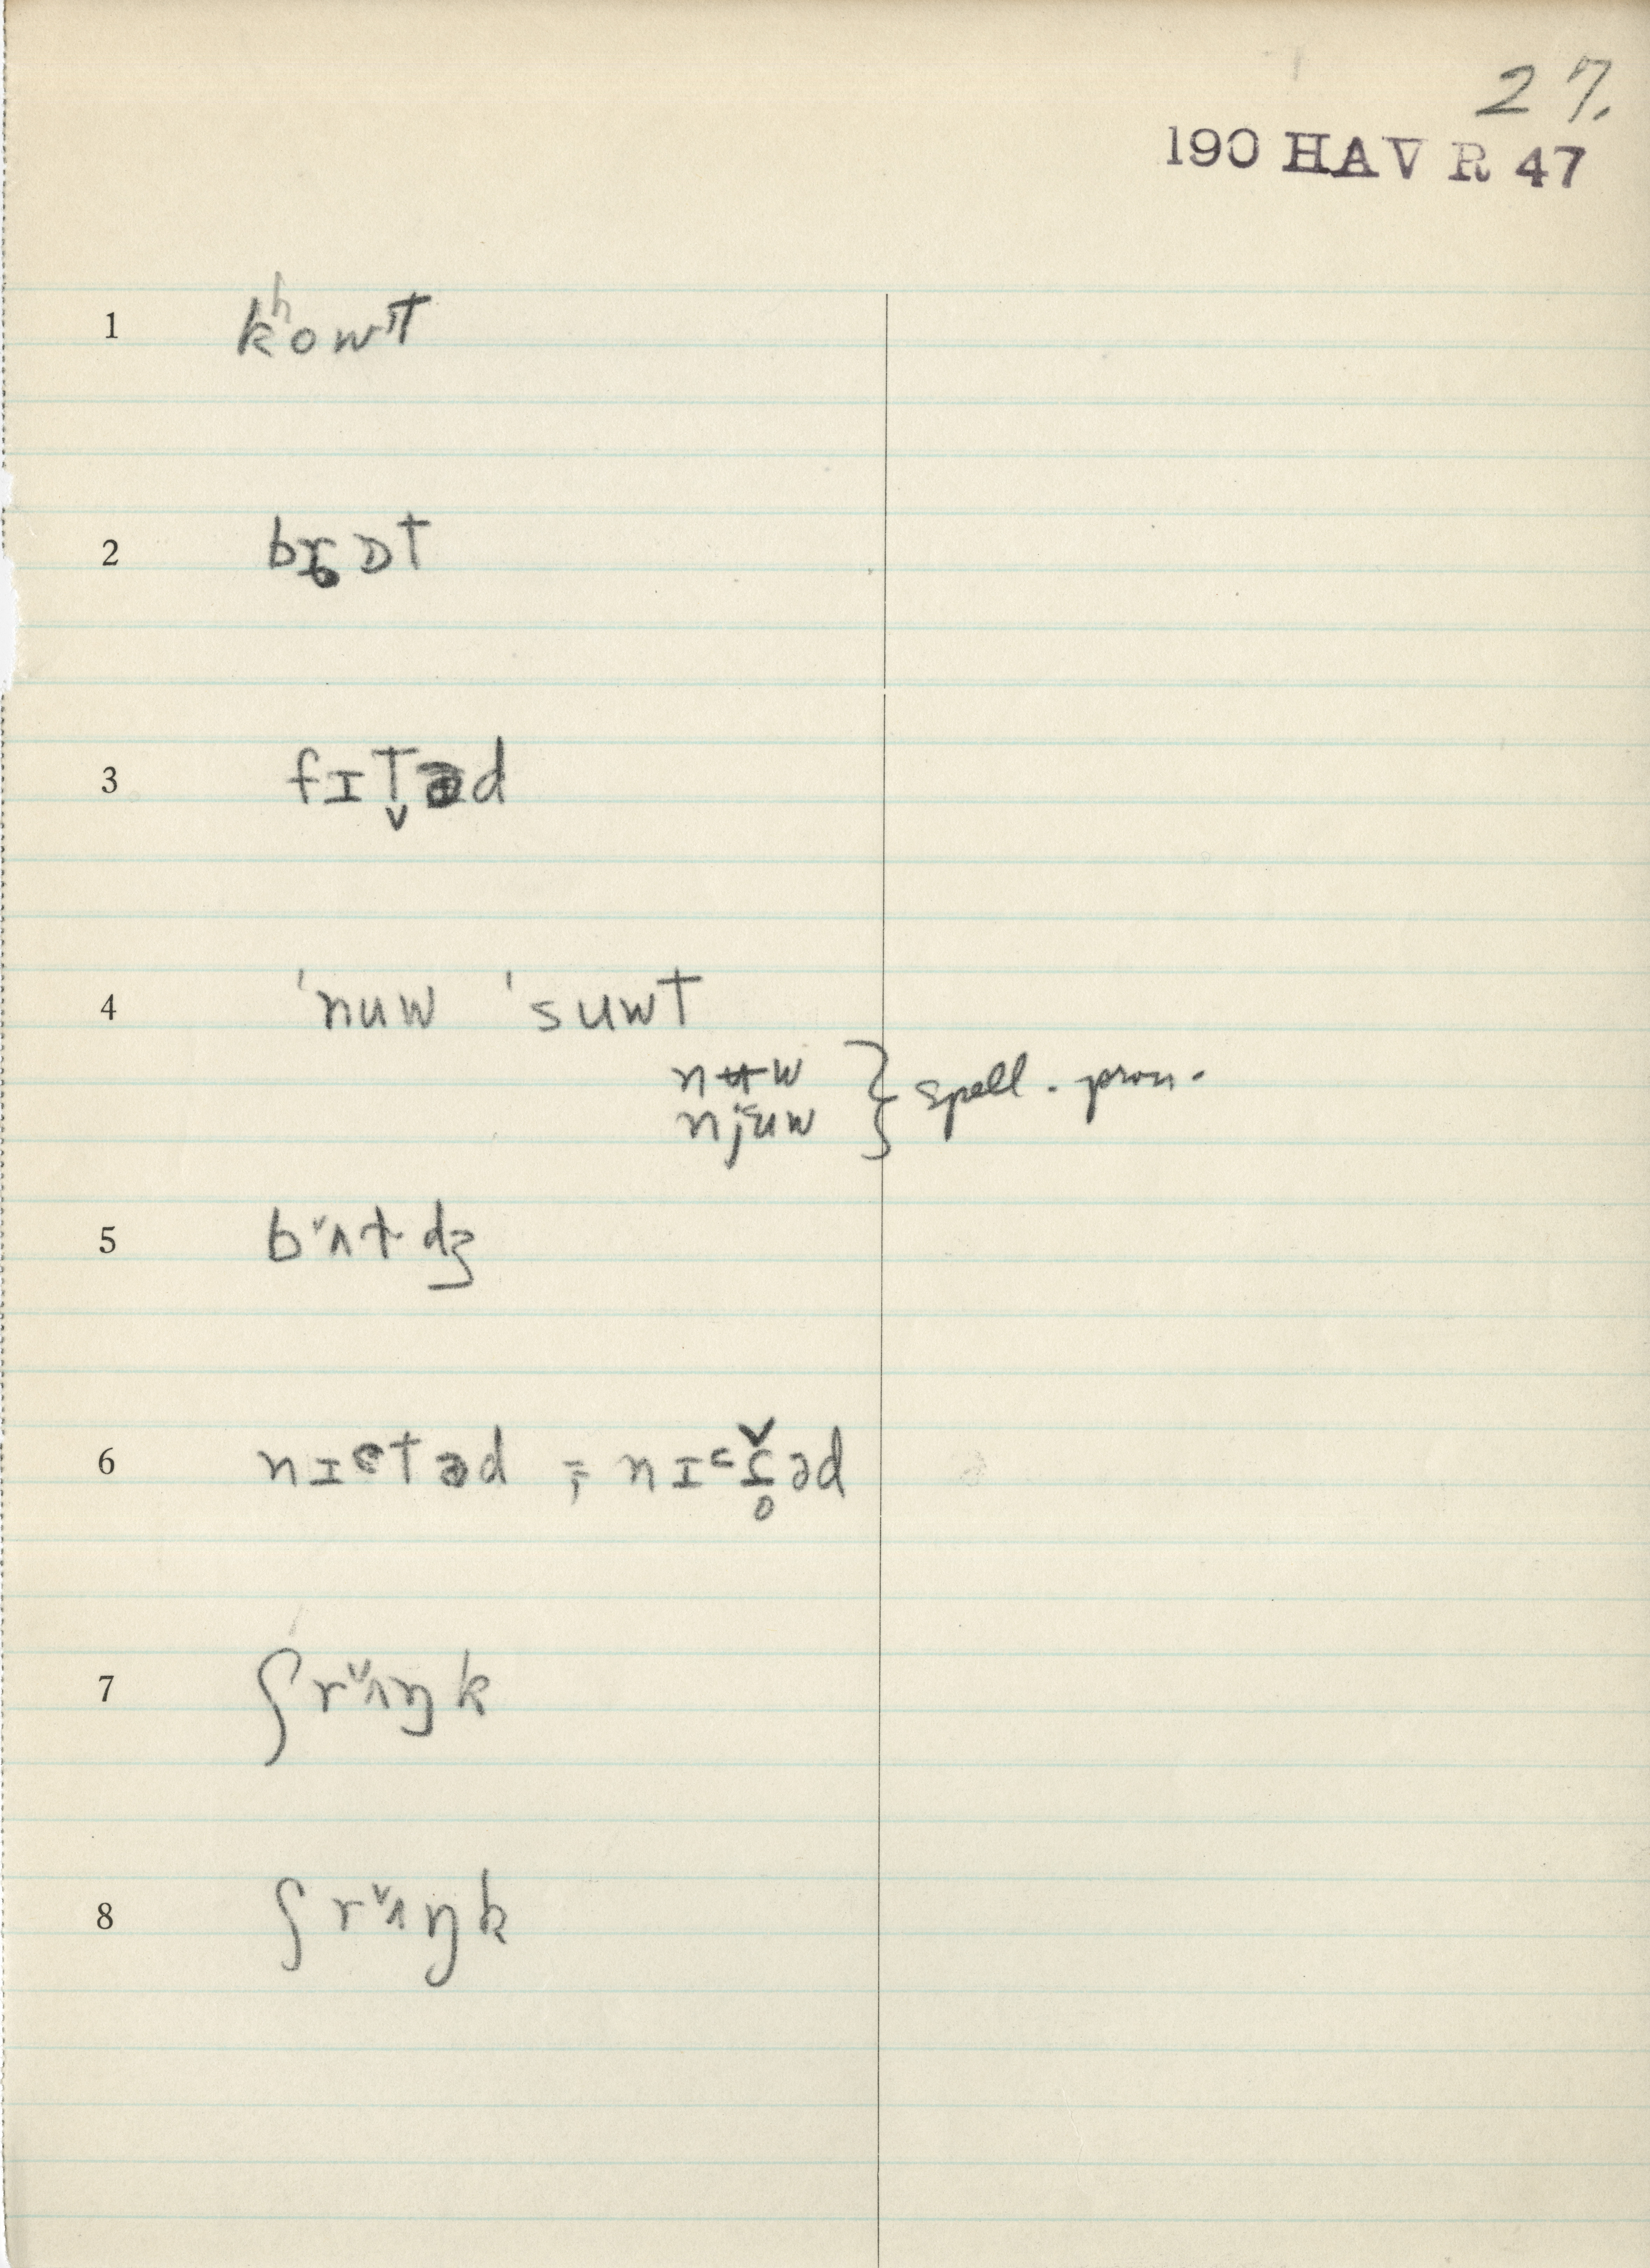 27.
190 HAV R 47
1 kʰowT
2 brɒT
3 fɪT̬əd
4 ˈnuw ˈsuwT
nʉw } spell. pron.
njuw
5 bᵛʌɫdʒ
6 nɪᵋTəd ; nɪᵋɾ̥̌əd
7 ʃrᵛʌŋk
8 ʃrᵛʌŋk